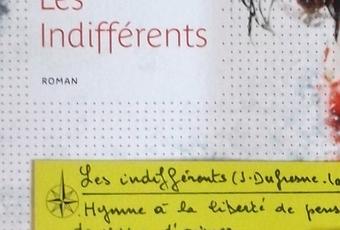 Les
Indifférents
ROMAN
Les indifférents (J. Dufresne-la
Hymne à la liberté de pens